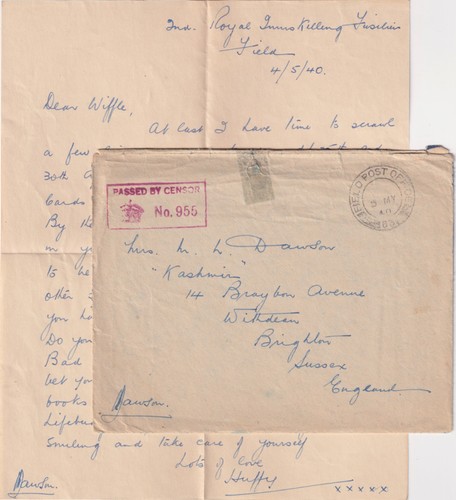 2nd. Royal Inniskilling Fusiliers
Field
4/5/40.
Dear Wiffle,
At last I have time to scrawl
a few
30th
Cards
By the
in y
to be
other
you ha
Do you
Bad
bet you
books
Lifebu
Smiling and take care of yourself
Lots of love
Huffy
xxxxx
Dawson.
PASSED BY CENSOR
No. 955
FIELD POST OFFICE
MY
40
Mrs. M. L. Dawson
"Kashmir"
14 Braybon Avenue
Withdean
Brighton
Sussex
England.
Dawson.